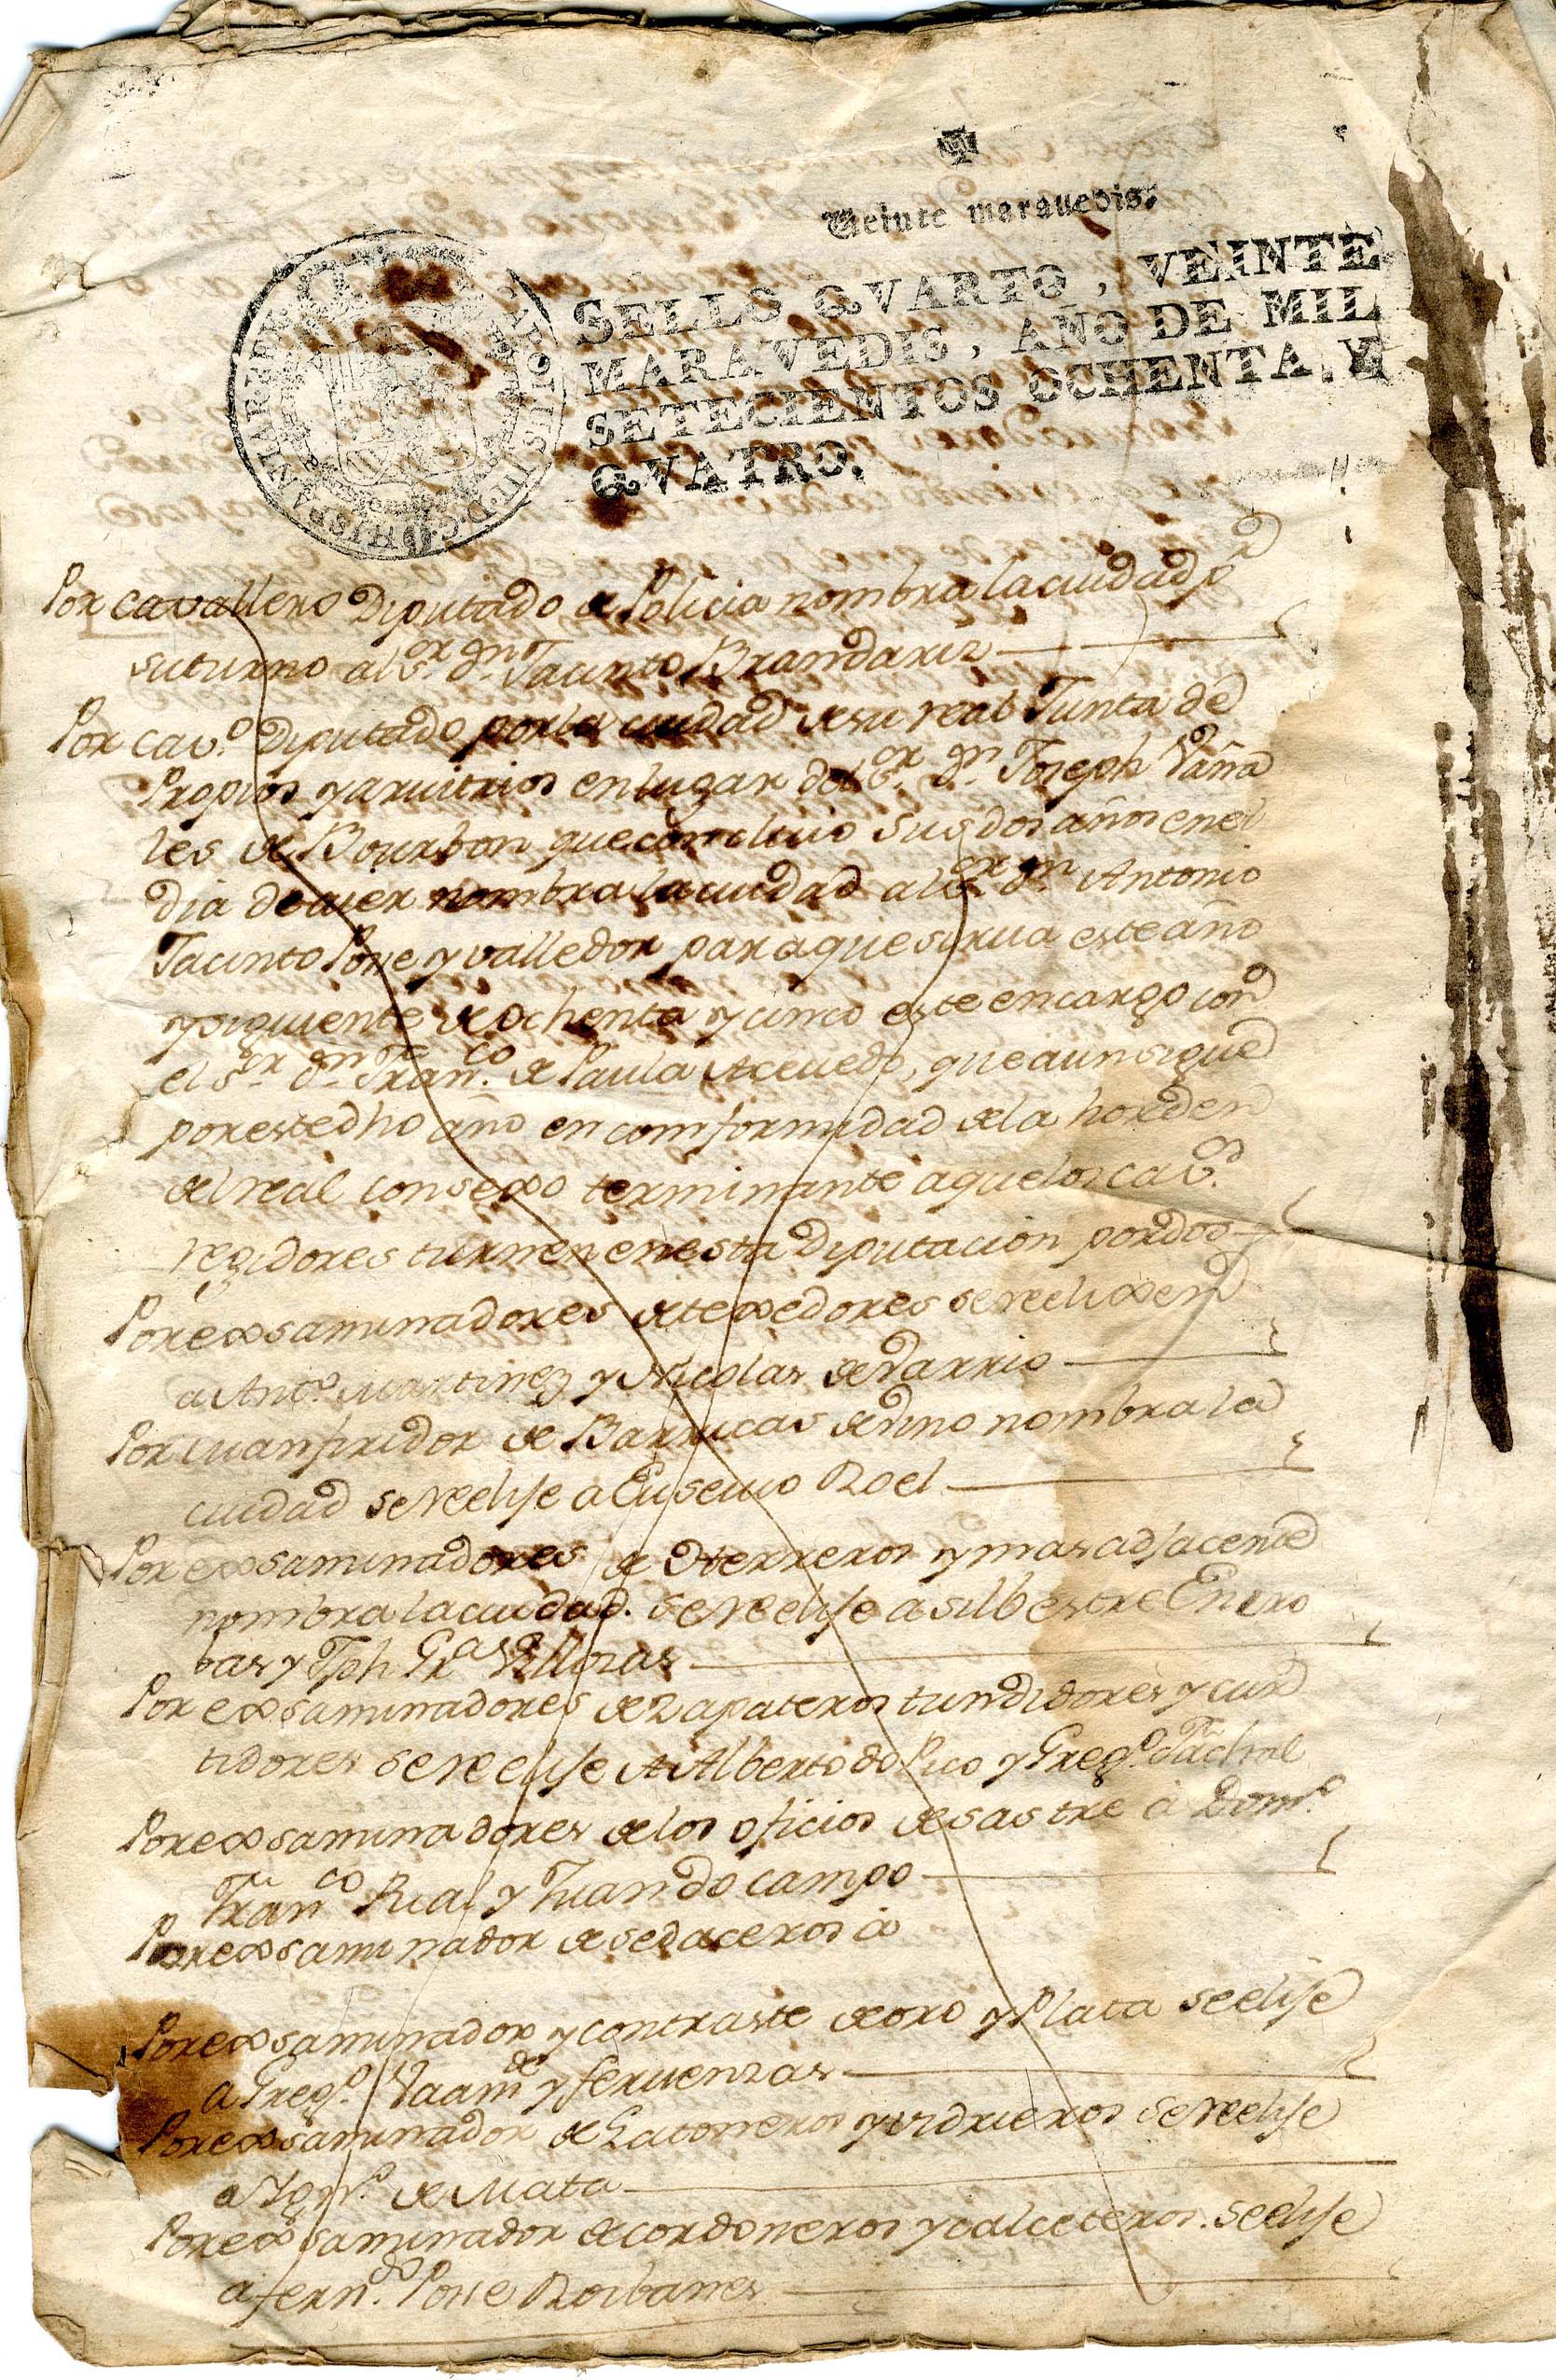 Veinte marauedis.
SELLO QVARTO, VEINTE
MARAVEDIS, AÑO DE MIL
SETECIENTOS OCHENTA Y
QVATRO.
HISPANIARUM
Por cavallero Diputado de Policia nombra la ciudad p.r
su turno al S.or d.n Jacinto Brandariz
Por cav.o Diputado por la ciudad de su real Junta de
Propios y aruitrios en lugar del S.or d.n Joseph Váña
les de Bourbon que concluio sus dos años en el
dia de aier nombra la ciudad al S.or d.n Antonio
Jacinto Pose y valledor para que sirua este año
y siguiente de ochenta y cinco este encargo con
el S.or d.n Fran.co de Paula Aceuedo, que aun sigue
por este dho año en comformidad de la horden
del real consexo terminante a que los cav.s
regidores turnen en esta Diputacion por dos
Por exsaminadores de texedores se reelixen
a Ant.o Martinez y Nicolas de Varrio
Por manpiridor de Barricas de vino nombra la
ciudad se reelije a Eusevio Roel
Por exsaminadores de Herreros y mas adjacente
nombra la ciudad. se reelije a silbestre
bas y Jph Gr.a Villozas
Por exsaminadores de zapateros tundidores y cur
tidores se reelije A Alberto do Pico y Greg.o
Por exsaminadores de los oficios de sastre à Dom.o
Fran.co Rial y Juan do campo
Por exsaminador de sedaceros à
Por exsaminador y contraste de oro y Plata se elije
a Greg.o Vaam.de y feruenzas
Por exsaminador de Latoneros y vidrieros se reelije
a de Mata
Por exsaminador de cordoneros y calceteros. se elije
a fern.do Pose Roibanes